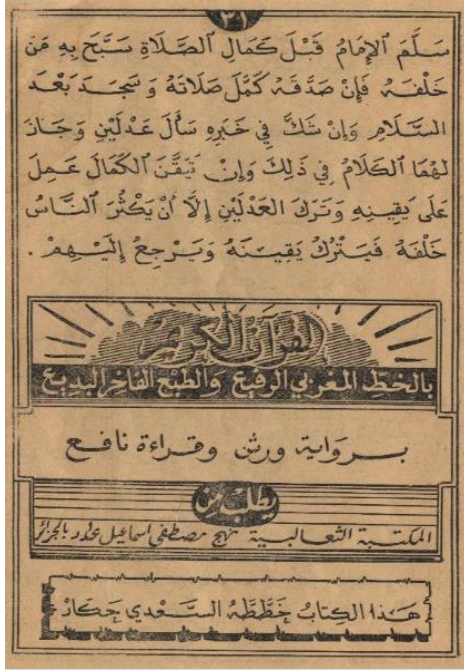 ٣١
سَلَّمَ الإِمَامُ قَبْلَ كَمَالِ الصَّلَاةِ سَبَّحَ بِهِ مَنْ
خَلْفَهُ فَإِنْ صَدَّقَهُ كَمَّلَ صَلَاتَهُ وَسَجَدَ بَعْدَ
السَّلَامِ وَإِنْ شَكَّ فِي خَبَرِهِ سَأَلَ عَدْلَيْنِ وَجَازَ
لَهُمَا الكَلَامُ فِي ذَلِكَ وَإِنْ تَيَقَّنَ الكَمَالَ عَمِلَ
عَلَى يَقِينِهِ وَتَرَكَ العَدْلَيْنِ إِلَّا أَنْ يَكْثُرَ النَّاسُ
خَلْفَهُ فَيَتْرُكُ يَقِينَهُ وَيَرْجِعُ إِلَيْهِمْ .
القرآن الكريم
بالخط المغربي الرفيع والطبع الفاخر البديع
برواية ورش وقراءة نافع
يطلب من
المكتبة الثعالبية نهج مصطفى اسماعيل عدد بالجزائر
هَذَا الكِتَابُ خَطَّطَهُ السَّعْدِي حَكَّار